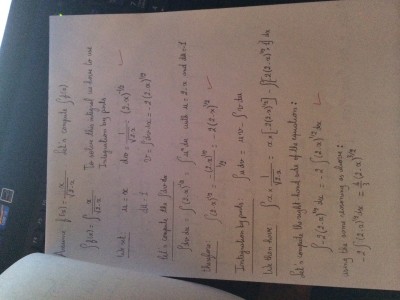 Answer: f(x) = x/√(2-x)   Let's compute ∫f(x)
∫f(x) = ∫ x/√(2-x)   To solve this integral we have to use
Integration by parts
We set   u = x   dv = 1/√(2-x) = (2-x)^(-1/2)
du = 1   v = ∫dv dx = -2(2-x)^(1/2)
Let's compute the ∫dv dx
∫dv dx = ∫(2-x)^(-1/2) = ∫u^n du with u = 2-x and du = 1
therefore: ∫(2-x)^(-1/2) = -(2-x)^(1/2)/(1/2) = -2(2-x)^(1/2)
Integration by parts: ∫u dv = uv - ∫v du
We then have: ∫x × 1/√(2-x) = x × [-2(2-x)^(1/2)] - ∫[-2(2-x)^(1/2) × 1] dx
Let's compute the right hand side of the equation:
∫-2(2-x)^(1/2) dx = -2 ∫(2-x)^(1/2) dx
using the same reasoning as above:
-2 ∫(2-x)^(1/2) dx = 4/3 (2-x)^(3/2)